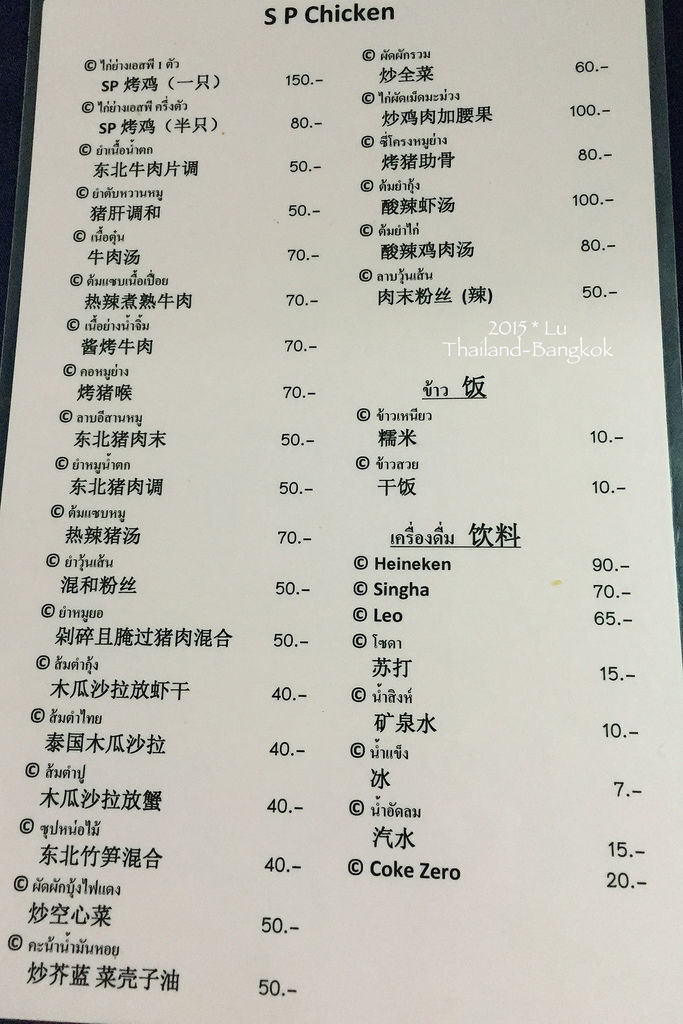 S P Chicken
© ไก่ย่างเอสพี 1 ตัว
SP 烤鸡（一只） 150.-
© ไก่ย่างเอสพี ครึ่งตัว
SP 烤鸡（半只） 80.-
© ยำเนื้อน้ำตก
东北牛肉片调 50.-
© ยำตับหวานหมู
猪肝调和 50.-
© เนื้อตุ๋น
牛肉汤 70.-
© ต้มแซบเนื้อเปื่อย
热辣煮熟牛肉 70.-
© เนื้อย่างน้ำจิ้ม
酱烤牛肉 70.-
© คอหมูย่าง
烤猪喉 70.-
© ลาบอีสานหมู
东北猪肉末 50.-
© ยำหมูน้ำตก
东北猪肉调 50.-
© ต้มแซบหมู
热辣猪汤 70.-
© ยำวุ้นเส้น
混和粉丝 50.-
© ยำหมูยอ
剁碎且腌过猪肉混合 50.-
© ส้มตำกุ้ง
木瓜沙拉放虾干 40.-
© ส้มตำไทย
泰国木瓜沙拉 40.-
© ส้มตำปู
木瓜沙拉放蟹 40.-
© ซุปหน่อไม้
东北竹笋混合 40.-
© ผัดผักบุ้งไฟแดง
炒空心菜 50.-
© คะน้าน้ำมันหอย
炒芥蓝 菜壳子油 50.-
© ผัดผักรวม
炒全菜 60.-
© ไก่ผัดเม็ดมะม่วง
炒鸡肉加腰果 100.-
© ซี่โครงหมูย่าง
烤猪助骨 80.-
© ต้มยำกุ้ง
酸辣虾汤 100.-
© ต้มยำไก่
酸辣鸡肉汤 80.-
© ลาบวุ้นเส้น
肉末粉丝 (辣) 50.-
2015 * Lu
Thailand-Bangkok
ข้าว 饭
© ข้าวเหนียว
糯米 10.-
© ข้าวสวย
干饭 10.-
เครื่องดื่ม 饮料
© Heineken 90.-
© Singha 70.-
© Leo 65.-
© โซดา
苏打 15.-
© น้ำสิงห์
矿泉水 10.-
© น้ำแข็ง
冰 7.-
© น้ำอัดลม
汽水 15.-
© Coke Zero 20.-